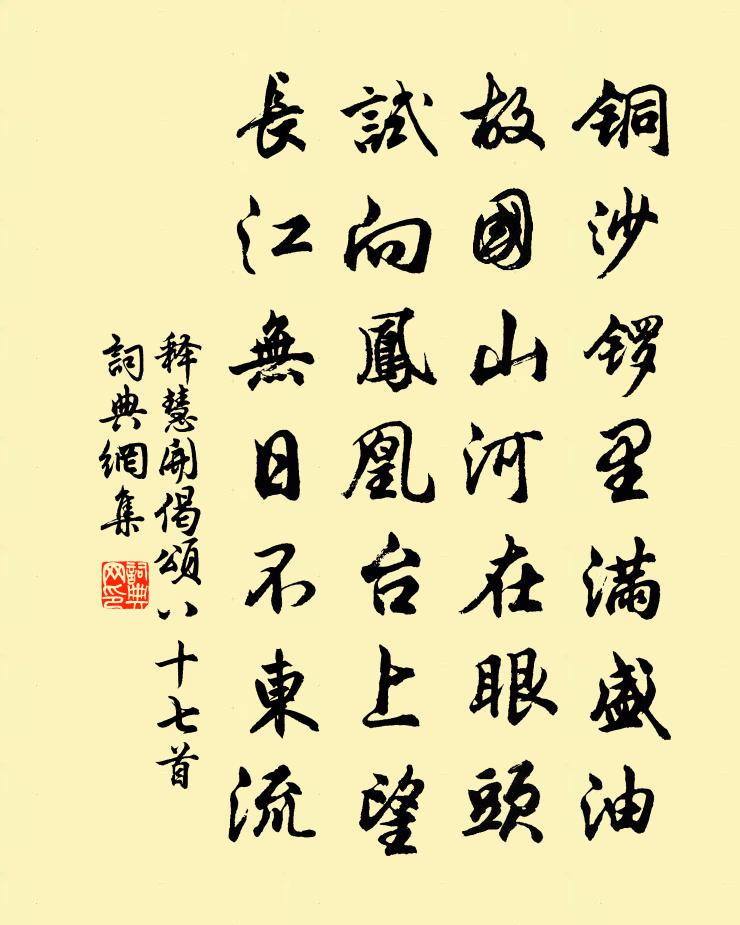 铜沙锣里满盛油
故國山河在眼頭
試向鳳凰台上望
長江無日不東流
释慧開偈頌八十七首
詞典網集
詞典网印